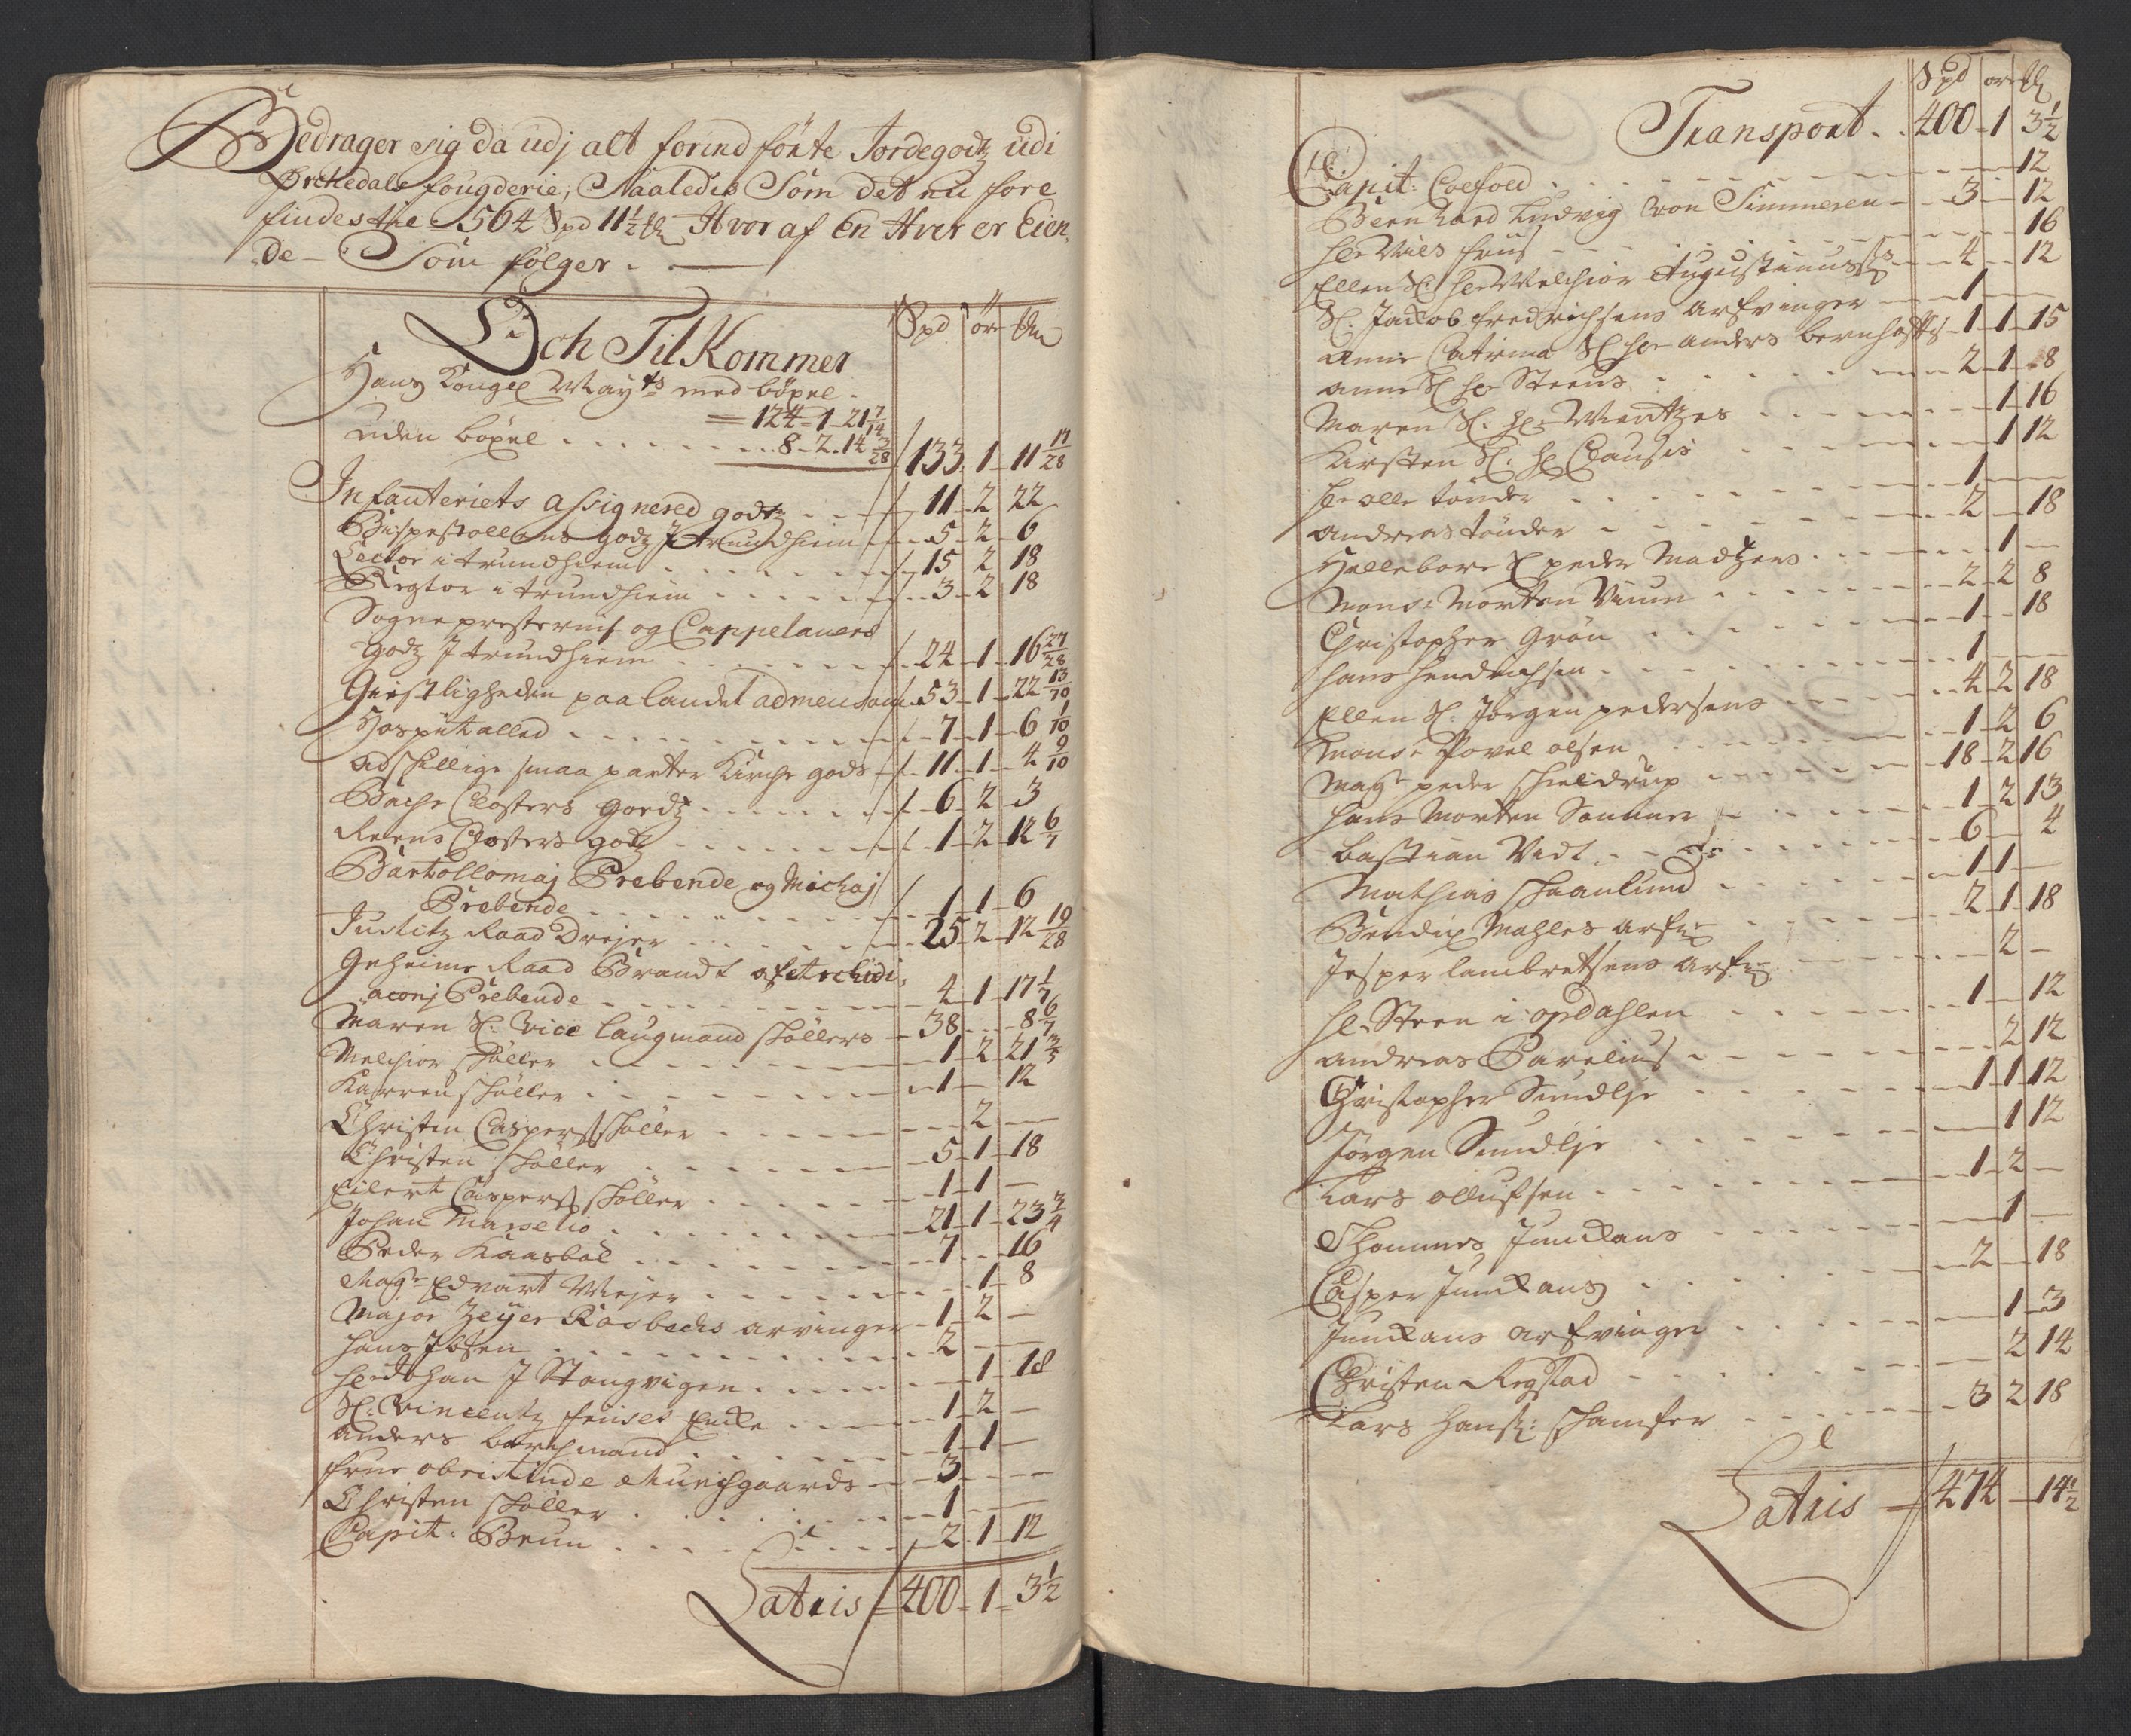 Bedrager sig da udj alt forindførte Jordegodtz udi
Ørchedals fougderie, Saaledis Som det nu fore
findes till 564 Spd 11½ ℔ Hvor af En Hver er Eien,
de - Som følger.
Spd öre ℔
Sich Til Kommer
Hans Kongel Mayts med böxel -
= 124 = 1 - 21 7/14
uden böxel . . . 8 - 2 - 14 3/28 / 133 - 1 - 11 17/28
Infanteriets assignered godtz - 11 - 2 - 22
Bispestollens godtz J trundhiem - 5 - 2 - 6
Lector i trundhiem - 15 2 18
Regtor i trundhiem - 3 - 2 18
Sognepresternis og Cappelaners
godtz J trundhiem - 24 - 1 - 16 27/28
Giestligheden paa landet ad mensam - 53 - 1 - 22 13/70
Hospitalled - 7 - 1 - 6 1/10
adschillige smaa parter Kirche gods - 11 - 1 - 4 9/10
Bache Closters godtz - 6 - 2 - 3
Reens Closters godtz - 1 - 2 - 12 6/7
Bartollomaj Prebende og Michaj
Prebende - 1 - 1 - 6
Justitz Raad Drejer - 25 - 2 - 12 19/28
Geheime Raad Brandt af Archidi,
aconj Prebende - 4 - 1 - 17 1/7
Maren Sl. Vice laugmand schøllers - 38 - 8 6/7
Melchior schøller - 1 - 2 - 21 3/5
Karren schøller - 1 - 12
Christen Caspers schøller - 2 -
Christen schøller - 5 - 1 - 18
Eilert Caspers schøller - 1 - 1 -
Johan Marselio - 21 - 1 - 23 3/4
Peder Kaasbøl - 7 - 16
Magr Edvart Meyer - 1 - 8
Major Zeyer Rosbechs arvinger - 1 - 2 -
Hans Ibsen - 2 -
Hr Johan J Stangvigen - 1 - 18
Sl. Vincentz friises Encke - 1 - 2 -
Anders borchmand - 1 - 1 -
frue obristinde Munchgaards - 3 -
Christen schøller - 1 -
Capit: Brun - 2 - 1 - 12
Latris 400 - 1 - 3½
Spd ore ℔
Transport . . 400 - 1 3½
Capit: Coefoed - 12
Bernhard Ludvig von Simmeren - 3 - 12
Hr Niels friis - 16
Ellen Sl. Hr Melchior Augustinuss - 4 - 12
Sl. Jackob fredrichsens arfvinger - 1 -
Anne Catrina Sl Hr anders bernhoffts - 1 - 1 - 15
anne Sl Hr Steens - 2 - 1 - 8
Maren Sl. Hr Mentzes - 1 - 16
Kirsten Sl. Hr Clausis - 1 12
Hr olle tønder - 1 -
andreas tønder - 2 - 18
Hellebore Sl peder Madtzens - 1 -
Mons: Morten Vium - 2 - 2 8
Christopher Grøn - 1 - 18
Hans Hendrichsen - 1 -
Ellen Sl. Jørgen pedersens - 4 2 18
Mons: Povel olsen - 1 - 2 6
Magr peder schieldrup - 18 - 2 16
Hans Morten Sommer - 1 2 13
Bastian Vidt - 6 - 4
Mathias schaanlund - 1 1 -
Bendix Mahles arf: - 2 - 1 - 18
Jesper lambretsens arf: - 2 -
Hr Steen i opdahlen - 1 - 12
andreas Parelius - 2 12
Christopher Sundlje - 1 1 12
Jørgen Sundlje - 1 12
Lars olluffsen - 1 - 2 -
Thommes Junckans - 1 -
Casper Junckans - 2 - 18
Junckans arfvinger - 1 - 3
Christen Regstad - 2 14
Lars Hans: schamfer - 3 2 18
Latris 474 - 14½